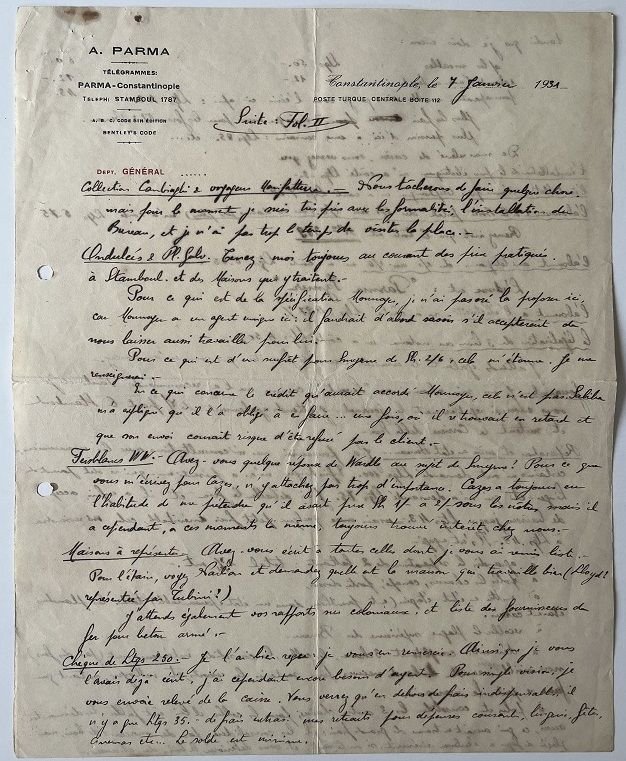 A. PARMA
TÉLÉGRAMMES:
PARMA-Constantinople
TELEPH: STAMBOUL 1787
A. B. C. CODE 5TH EDITION
BENTLEY'S CODE
Constantinople, le 7 Janvier 1931
POSTE TURQUE CENTRALE BOITE 112
Suite: Fol. II
DEPT. GÉNÉRAL ......
Collection & voyageur Manfattura.- Nous tâcherons de faire quelque chose
mais pour le moment je suis très pris avec les formalités, l'installation du
Bureau, et je n'ai pas trop le temps de visiter la place.-
Ondulées & Pl. Galv. Tenez-moi toujours au courant des prix pratiqués
à Stamboul et des Maisons qui y traitent.-
Pour ce qui est de la spécification je n'ai pas osé la proposer ici,
car a un agent unique ici: il faudrait d'abord savoir s'il accepteront de
nous laisser aussi travailler pour lui.-
Pour ce qui est d'un pour de Sh. 2/6 cela m'étonne. Je me
renseignerai.-
En ce qui concerne le crédit qu'aurait accordé cela n'est pas
m'a répliqué qu'il l'a obligé à ce faire... une fois, où il se trouvait en retard et
que son envoi courait risque d'être refusé par le client.-
Ferblancs WW.- Avez-vous quelque réponse de au sujet de Pour ce que
vous m'écrivez pour Cazes, n'y attachez pas trop d'importance. Cazes a toujours eu
l'habitude de me prétendre qu'il avait prix Sh 1/ à 2/ sous les nôtres, mais il
a cependant, à ces moments là même, toujours trouvé intérêt chez nous.-
Maisons à représenter Avez-vous écrit à toutes celles dont je vous ai remis liste.-
Pour l'étain, voyez et demandez quelle est la maison qui travaille bien (Lloyd?
représentée par Tubini?)
J'attends également vos rapports sur coloniaux, et liste des fournisseurs de
fer pour béton armé.-
Chèque de Ltgs 250.- Je l'ai bien reçu: je vous en remercie. Ainsi que je vous
l'avais déjà écrit, j'ai cependant encore besoin d'argent. Pour simple vision, je
vous envoie relevé de la caisse. Vous verrez qu'en dehors de frais indispensables il
n'y a que Ltgs 35.- de frais mes retraits pour dépenses courant, lingerie,
cinémas etc... Le solde est minime.